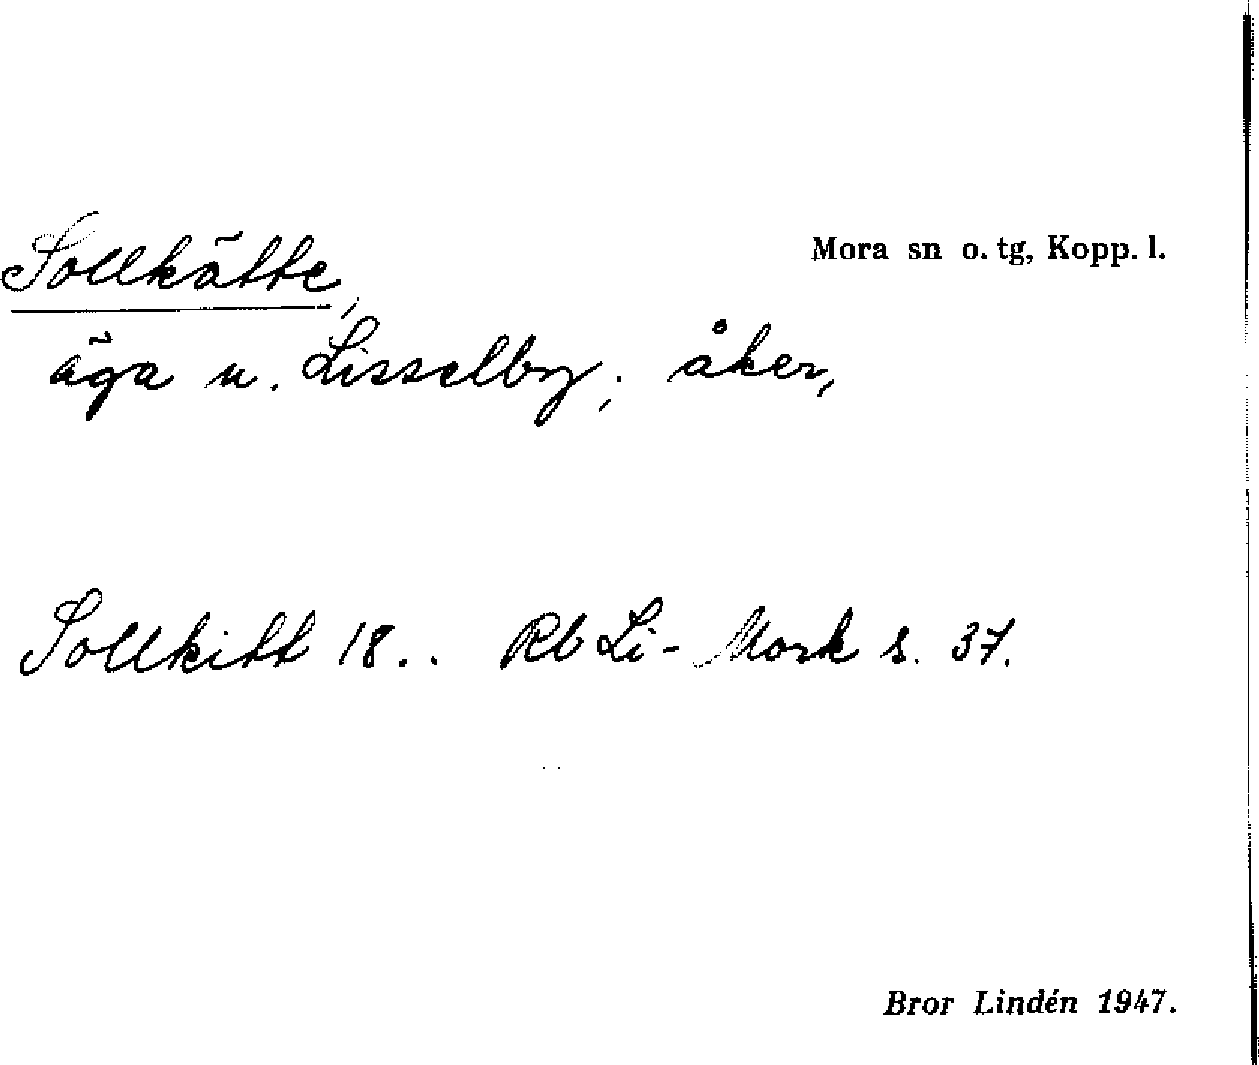 Sollkätte,
Mora sn o. tg, Kopp. l.
äga u. Lisselby; åker,
Sollkitt 18.. Rb Li-Mork s. 37.
Bror Lindén 1947.